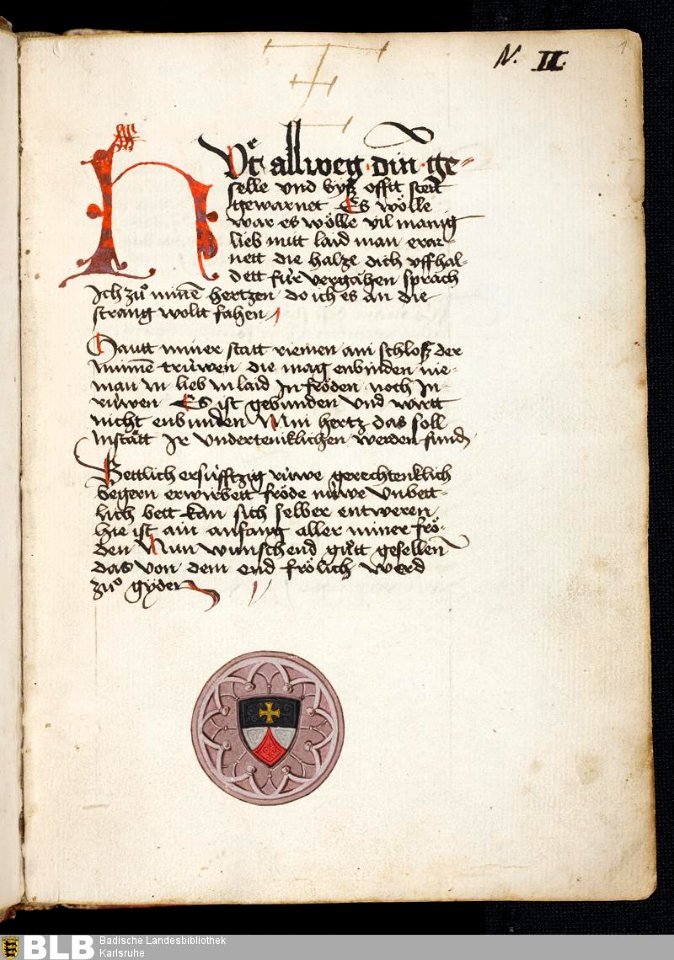 N. II.
1
HVͤt allweg · din · ge-
selle und biß offtt stett
gewarnet Es wölle
war es wölle vil manig
lieb mitt laid man erar-
nett die halze dich uffhal-
dett für vergåhen sprach
Ich zuͦ minē hertzen do ich es an die
strang woltt fahen
Hautt miner statt riemen ain schloß der
minne trüwen die mag enbinden nie-
man in lieb in laid In fröden noch In
rüwen Es ist gebunden Und wirtt
nicht enbunden Min hertz das soll
in stått Ir undertenklichen werden fund
Bettlich ersüfftzig rüwe gerechtenklich
begern erwirbett fröde nüwe Unbett-
lich bett kan sich selber entweren
hie ist ain anfang aller miner frö-
den Nun wunschend gůtt gesellen
das von dem end frölich werd
zuͦ gyder
BLB Badische Landesbibliothek
Karlsruhe